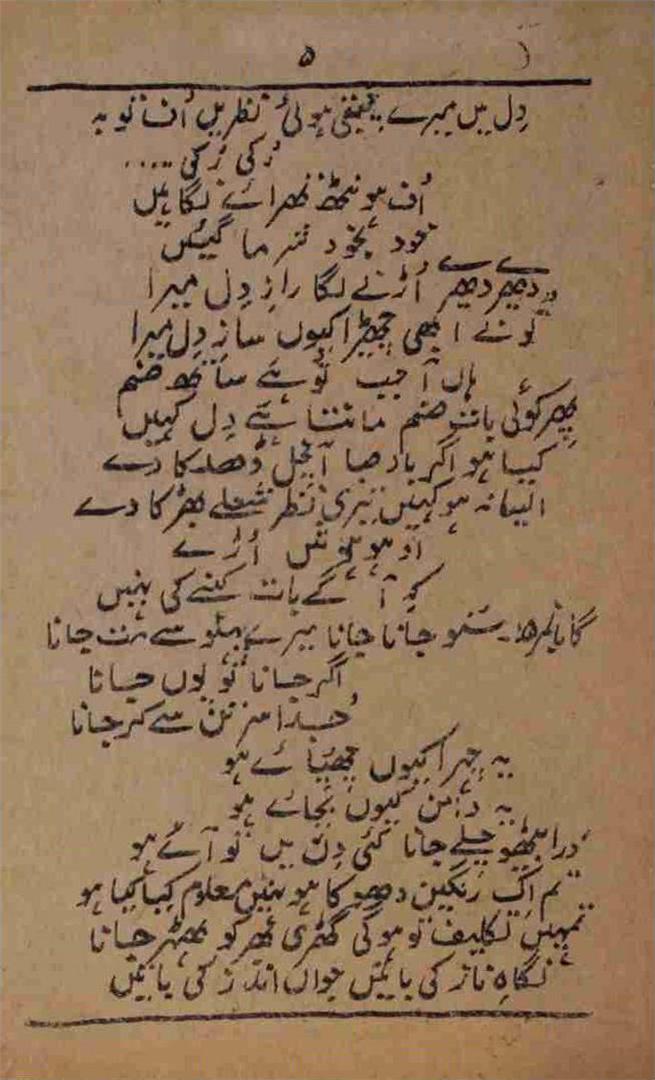 ۵
دِل میں میرے چبھتی ہوئی نظریں اُف توبہ
رُکی رُکی ....
اُف ہونٹھ تھرائے نگاہیں
خود بخود شرما گئیں
دھیرے دھیرے اُڑنے لگا رازِ دِل میرا
تونے ابھی چھیڑا کیوں سازِ دِل میرا
ہاں آ جب تو ہے ساتھ صنم
پھر کوئی بات صنم مانتا ہے دِل کہیں
کیا ہو اگر باد صبا آنچل ڈھلکا دے
ایسا نہ ہو کہیں تیری نظر شعلے بھڑکا دے
او ہو ہوش اُڑے
کہ آگے بات کہنے کی نہیں
گانا نمبر سنو جانا جانا میرے پہلو سے مت جانا
اگر جانا تو یوں جانا
جُدا سر تن سے کر جانا
یہ چہرا کیوں چھپائے ہو
یہ دامن کیوں بچائے ہو
ذرا بیٹھو چلے جانا کئی دِن میں تو آئے ہو
تم اِک رنگین دھوکا ہو نہیں معلوم کیا کیا ہو
تمہیں تکلیف تو ہوگی گھڑی بھر کو ٹھہر جانا
نگاہِ ناز کی باتیں جواں انداز کی باتیں